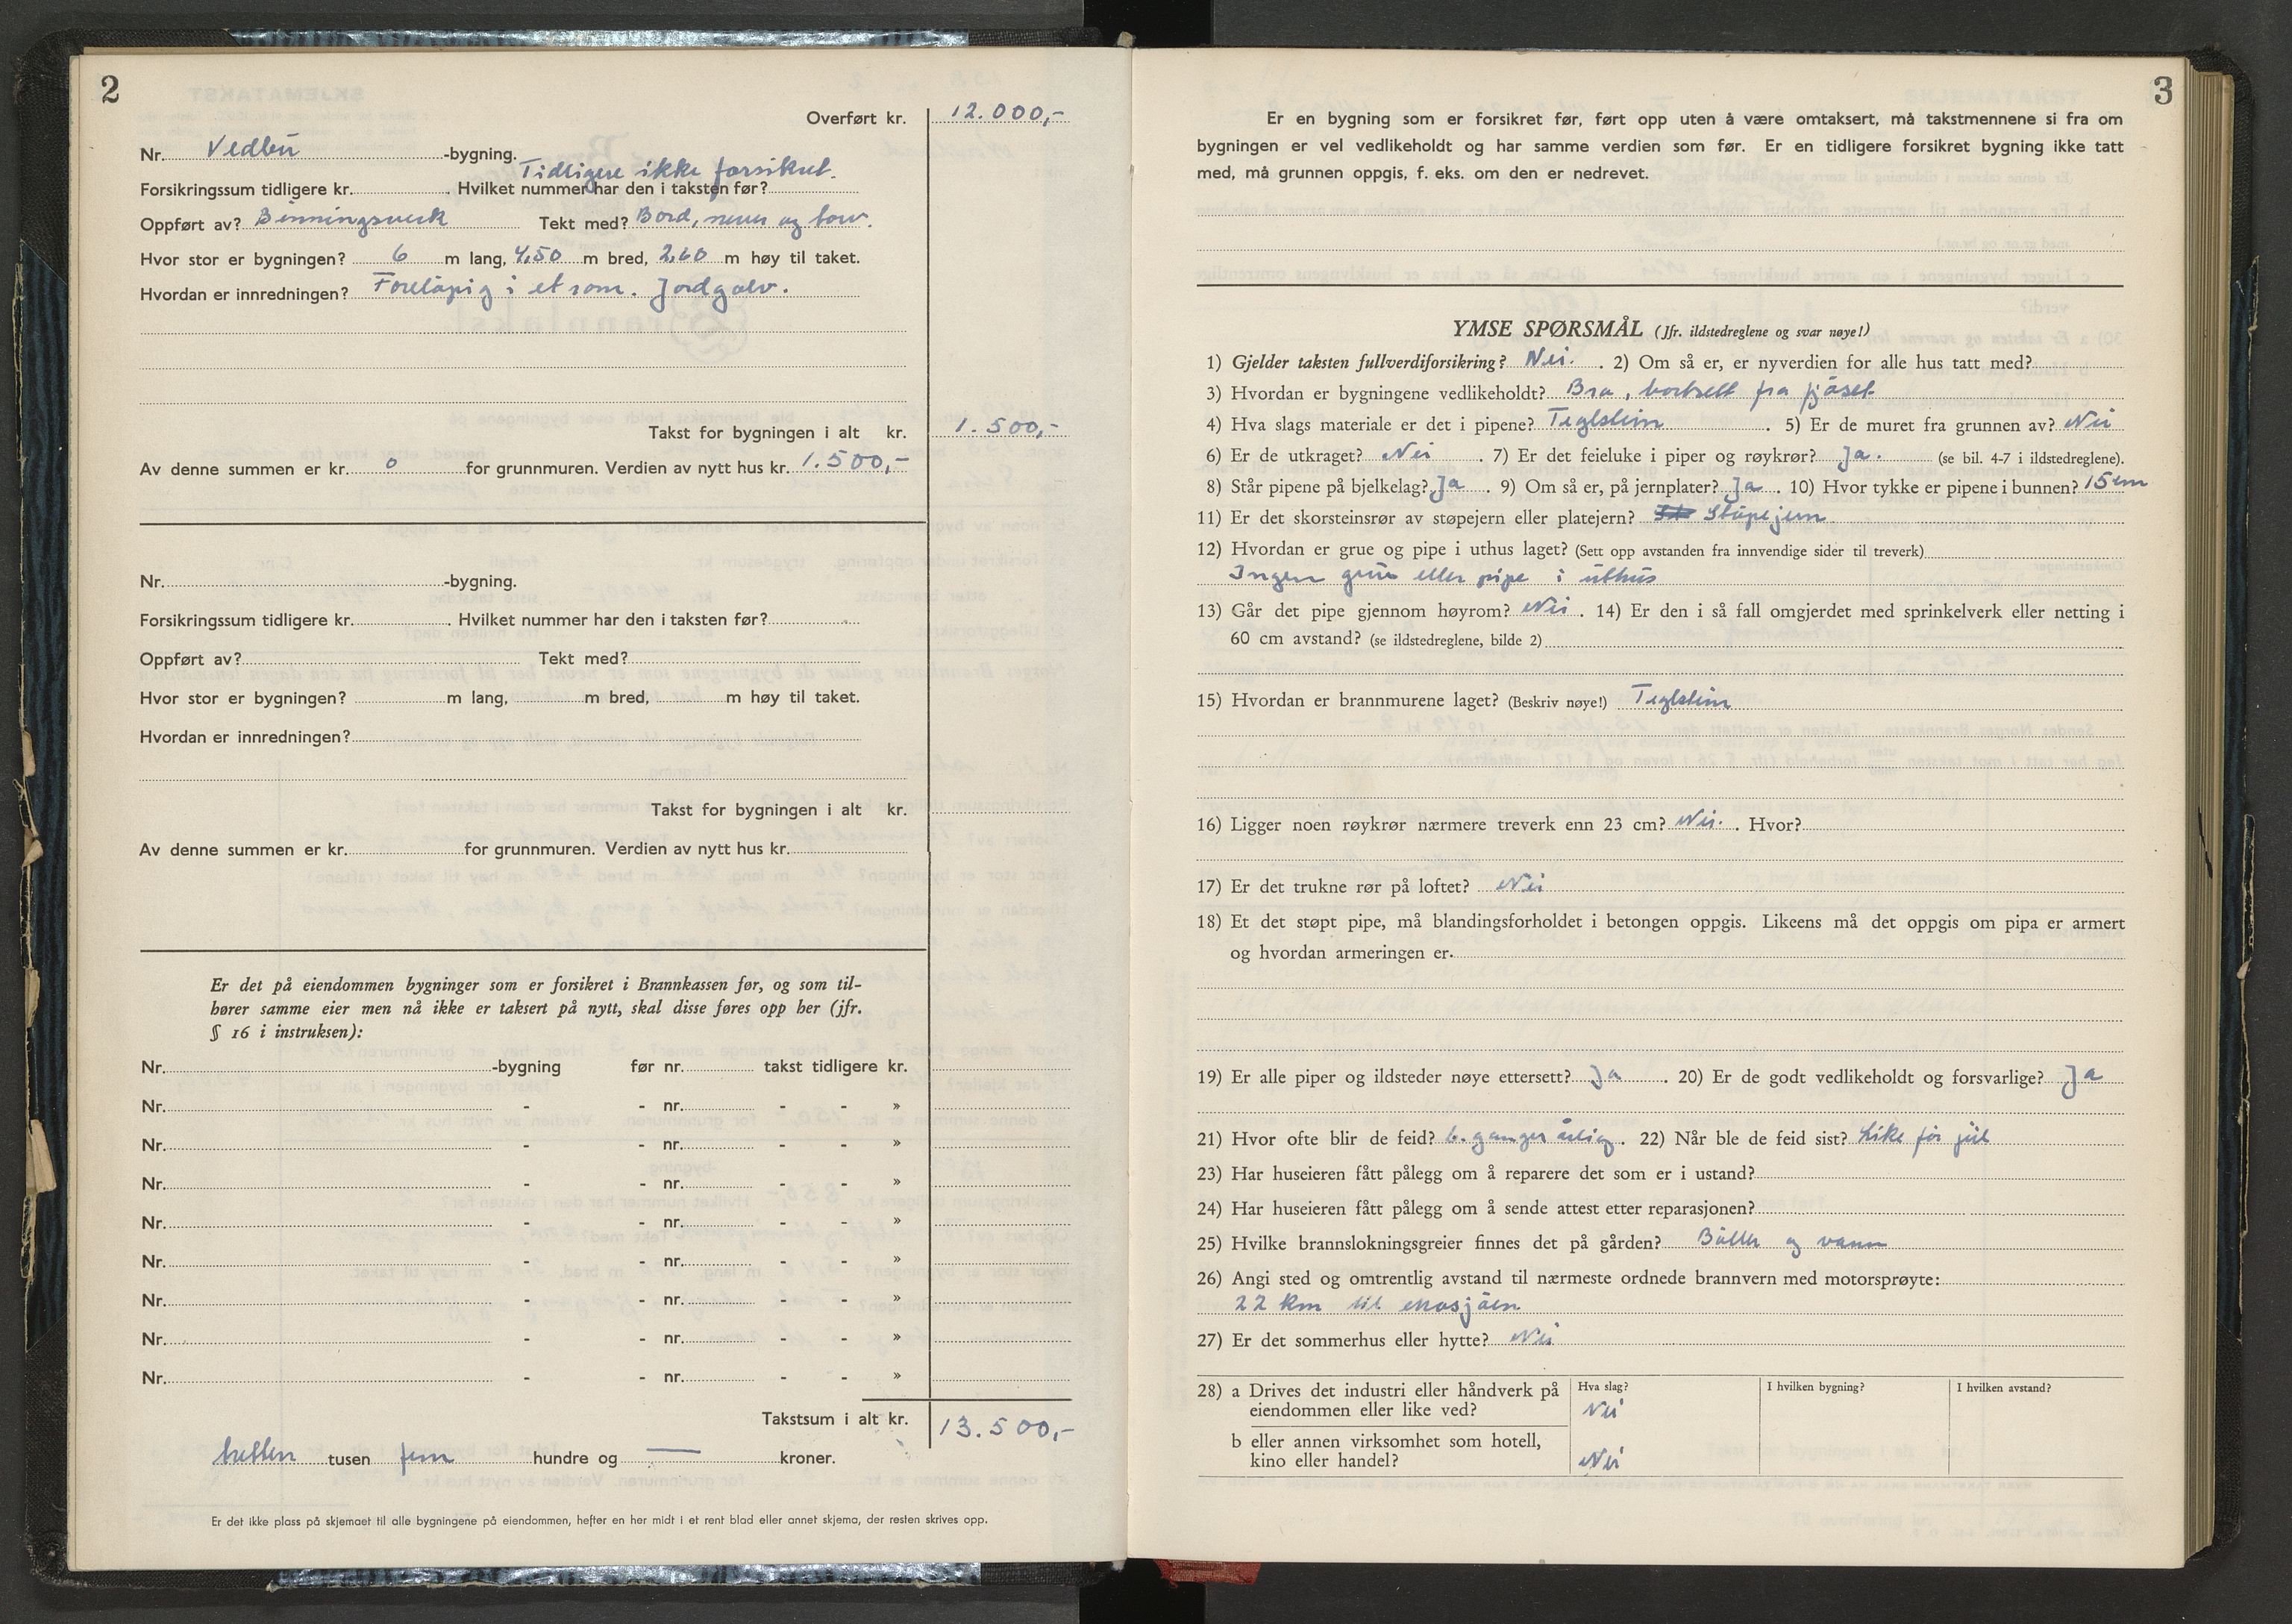 2
Overført kr. 12.000,-
Nr. Vedbu -bygning.
Tidligere ikke forsikret.
Forsikringssum tidligere kr. . Hvilket nummer har den i taksten før?
Oppført av? Binningsverk Tekt med? Bord, never og torv.
Hvor stor er bygningen? 6 m lang, 4,50 m bred, 2,60 m høy til taket.
Hvordan er innredningen? Foreløpig i et rom. Jordgolv.
Takst for bygningen i alt kr. 1.500,-
Av denne summen er kr. 0 for grunnmuren. Verdien av nytt hus kr. 1.500,-
Nr. -bygning.
Forsikringssum tidligere kr. . Hvilket nummer har den i taksten før?
Oppført av? Tekt med?
Hvor stor er bygningen? m lang, m bred, m høy til taket.
Hvordan er innredningen?
Takst for bygningen i alt kr.
Av denne summen er kr. for grunnmuren. Verdien av nytt hus kr.
Er det på eiendommen bygninger som er forsikret i Brannkassen før, og som til-
hører samme eier men nå ikke er taksert på nytt, skal disse føres opp her (jfr.
§ 16 i instruksen):
Nr. -bygning før nr. takst tidligere kr.
Nr. - - nr. - - »
Nr. - - nr. - - »
Nr. - - nr. - - »
Nr. - - nr. - - »
Nr. - - nr. - - »
Nr. - - nr. - - »
Nr. - - nr. - - »
Nr. - - nr. - - »
Takstsum i alt kr. 13.500,-
tretten tusen fem hundre og — kroner.
Er det ikke plass på skjemaet til alle bygningene på eiendommen, hefter en her midt i et rent blad eller annet skjema, der resten skrives opp.
3
Er en bygning som er forsikret før, ført opp uten å være omtaksert, må takstmennene si fra om
bygningen er vel vedlikeholdt og har samme verdien som før. Er en tidligere forsikret bygning ikke tatt
med, må grunnen oppgis, f. eks. om den er nedrevet.
YMSE SPØRSMÅL (Jfr. ildstedreglene og svar nøye!)
1) Gjelder taksten fullverdiforsikring? Nei. . 2) Om så er, er nyverdien for alle hus tatt med?
3) Hvordan er bygningene vedlikeholdt? Bra, bortsett fra fjøset
4) Hva slags materiale er det i pipene? Teglstein . 5) Er de muret fra grunnen av? Nei
6) Er de utkraget? Nei . 7) Er det feieluke i piper og røykrør? Ja. (se bil. 4-7 i ildstedreglene).
8) Står pipene på bjelkelag? Ja . 9) Om så er, på jernplater? Ja . 10) Hvor tykke er pipene i bunnen? 15 cm
11) Er det skorsteinsrør av støpejern eller platejern? Støpejern
12) Hvordan er grue og pipe i uthus laget? (Sett opp avstanden fra innvendige sider til treverk)
Ingen grue eller pipe i uthus
13) Går det pipe gjennom høyrom? Nei . 14) Er den i så fall omgjerdet med sprinkelverk eller netting i
60 cm avstand? (se ildstedreglene, bilde 2)
15) Hvordan er brannmurene laget? (Beskriv nøye!) Teglstein
16) Ligger noen røykrør nærmere treverk enn 23 cm? Nei. . Hvor?
17) Er det trukne rør på loftet? Nei
18) Et det støpt pipe, må blandingsforholdet i betongen oppgis. Likeens må det oppgis om pipa er armert
og hvordan armeringen er.
19) Er alle piper og ildsteder nøye ettersett? Ja . 20) Er de godt vedlikeholdt og forsvarlige? Ja
21) Hvor ofte blir de feid? 6. ganger årlig . 22) Når ble de feid sist? Like før jul
23) Har huseieren fått pålegg om å reparere det som er i ustand?
24) Har huseieren fått pålegg om å sende attest etter reparasjonen?
25) Hvilke brannslokningsgreier finnes det på gården? Bøtter og vann
26) Angi sted og omtrentlig avstand til nærmeste ordnede brannvern med motorsprøyte:
22 km til Mosjøen
27) Er det sommerhus eller hytte? Nei
28) a Drives det industri eller håndverk på Hva slag? I hvilken bygning? I hvilken avstand?
eiendommen eller like ved? Nei
b eller annen virksomhet som hotell,
kino eller handel? Nei